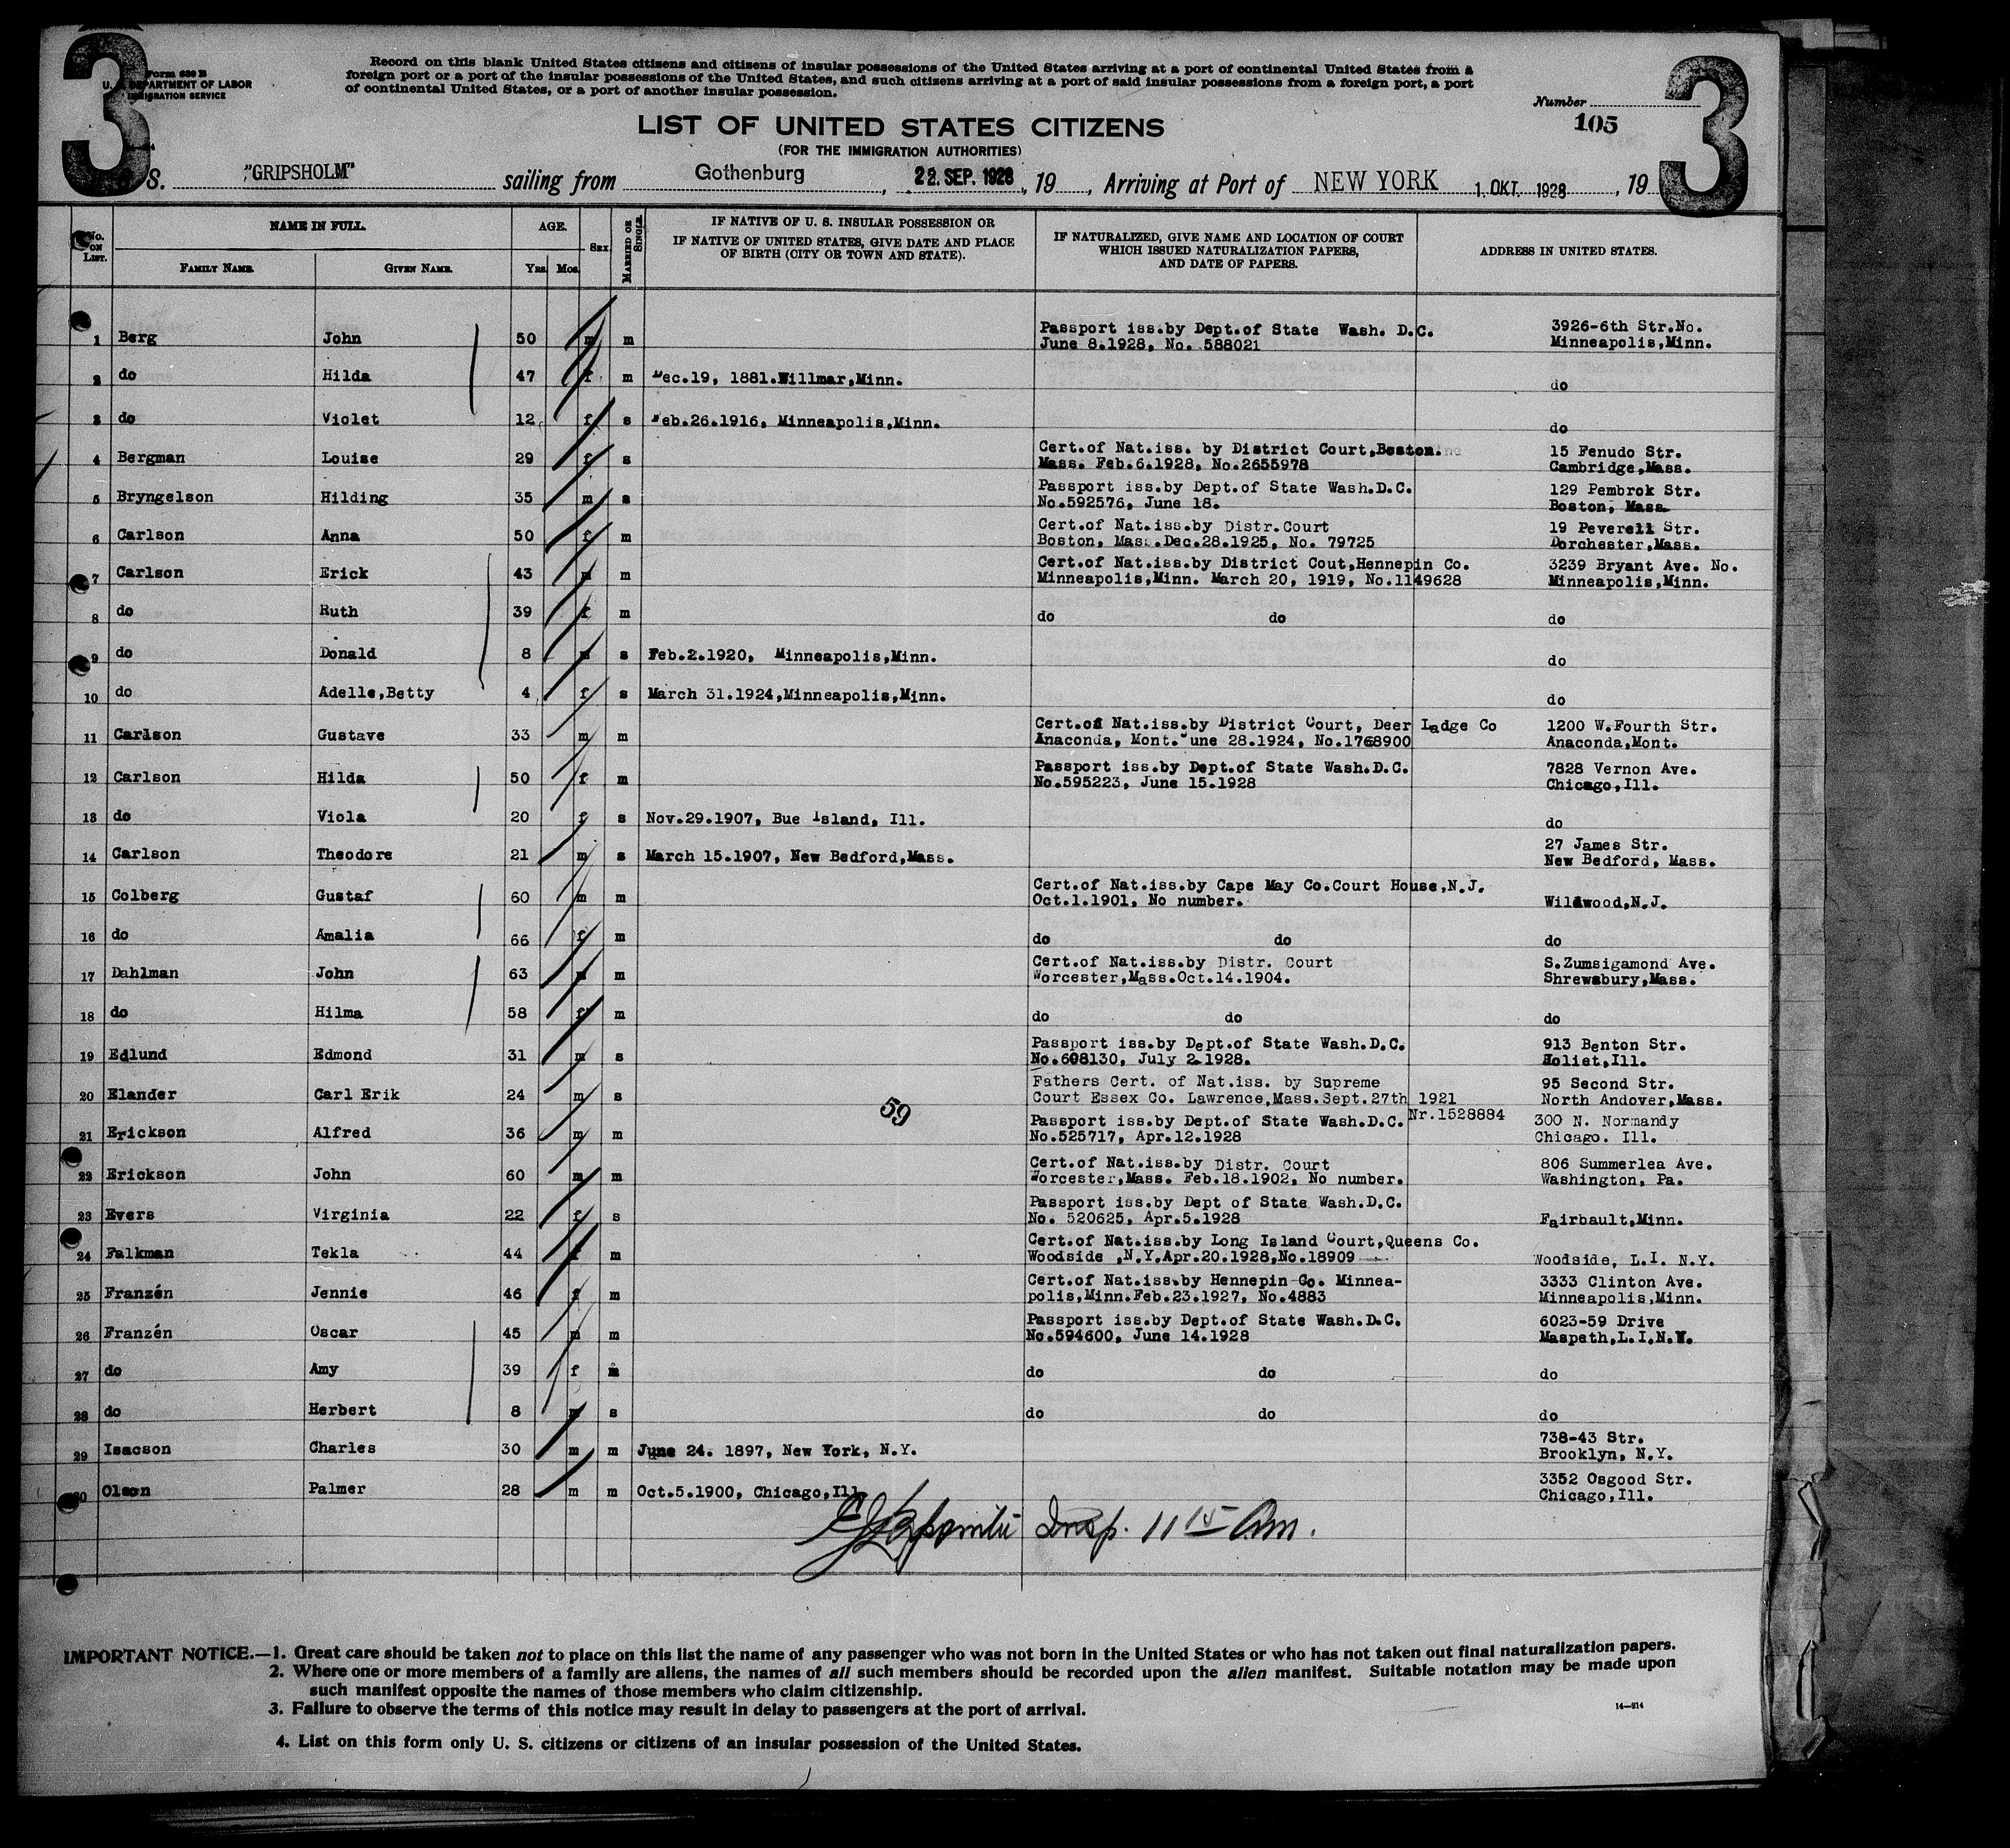 3
3
Form 630 B
U. S. DEPARTMENT OF LABOR
IMMIGRATION SERVICE
Record on this blank United States citizens and citizens of insular possessions of the United States arriving at a port of continental United States from a
foreign port or a port of the insular possessions of the United States, and such citizens arriving at a port of said insular possessions from a foreign port, a port
of continental United States, or a port of another insular possession.
Number
105
LIST OF UNITED STATES CITIZENS
(FOR THE IMMIGRATION AUTHORITIES)
S. "GRIPSHOLM" sailing from Gothenburg, 22. SEP. 1928, 19, Arriving at Port of NEW YORK 1. OKT. 1928, 19
No. ON LIST. NAME IN FULL. AGE. SEX. MARRIED OR SINGLE. IF NATIVE OF U. S. INSULAR POSSESSION OR
IF NATIVE OF UNITED STATES, GIVE DATE AND PLACE
OF BIRTH (CITY OR TOWN AND STATE).
IF NATURALIZED, GIVE NAME AND LOCATION OF COURT
WHICH ISSUED NATURALIZATION PAPERS,
AND DATE OF PAPERS.
ADDRESS IN UNITED STATES.
FAMILY NAME. GIVEN NAME. YRS. MOS.
1 Berg John 50 m m Passport iss.by Dept.of State Wash. D.C. 3926-6th Str.No.
June 8.1928, No. 588021 Minneapolis,Minn.
2 do Hilda 47 f m Dec.19, 1881.Willmar,Minn. do
3 do Violet 12 f s Feb.26.1916, Minneapolis,Minn. do
4 Bergman Louise 29 f s Cert.of Nat.iss. by District Court,Boston. 15 Fenudo Str.
Mass. Feb.6.1928, No.2655978 Cambridge,Mass.
5 Bryngelson Hilding 35 m s Passport iss.by Dept.of State Wash.D.C. 129 Pembrok Str.
No.592576, June 18. Boston, Mass.
6 Carlson Anna 50 f m Cert.of Nat.iss.by Distr.Court 19 Peverell Str.
Boston, Mass.Dec.28.1925, No. 79725 Dorchester,Mass.
7 Carlson Erick 43 m m Cert.of Nat.iss.by District Cout,Hennepin Co. 3239 Bryant Ave. No.
Minneapolis,Minn. March 20, 1919, No.1149628 Minneapolis,Minn.
8 do Ruth 39 f m do do do
9 do Donald 8 m s Feb.2.1920, Minneapolis,Minn. do
10 do Adelle,Betty 4 f s March 31.1924,Minneapolis,Minn. do
11 Carlson Gustave 33 m m Cert.of Nat.iss.by District Court, Deer Ladge Co 1200 W.Fourth Str.
Anaconda, Mont.June 28.1924, No.1768900 Anaconda,Mont.
12 Carlson Hilda 50 f m Passport iss.by Dept.of State Wash.D.C. 7828 Vernon Ave.
No.595223, June 15.1928 Chicago,Ill.
13 do Viola 20 f s Nov.29.1907, Bue Island, Ill. do
14 Carlson Theodore 21 m s March 15.1907, New Bedford,Mass. 27 James Str.
New Bedford, Mass.
15 Colberg Gustaf 60 m m Cert.of Nat.iss.by Cape May Co.Court House,N.J.
Oct.1.1901, No number. Wildwood,N.J.
16 do Amalia 66 f m do do do
17 Dahlman John 63 m m Cert.of Nat.iss.by Distr. Court S.Zumsigamond Ave.
Worcester,Mass.Oct.14.1904. Shrewsbury,Mass.
18 do Hilma 58 f m do do do
19 Edlund Edmond 31 m s Passport iss.by Dept.of State Wash.D.C. 913 Benton Str.
No.608130, July 2.1928. Joliet,Ill.
20 Elander Carl Erik 24 m s Fathers Cert. of Nat.iss. by Supreme 95 Second Str.
Court Essex Co. Lawrence,Mass.Sept.27th 1921 North Andover,Mass.
Nr.1528884
59
21 Erickson Alfred 36 m m Passport iss.by Dept.of State Wash.D.C. 300 N. Normandy
No.525717, Apr.12.1928 Chicago. Ill.
22 Erickson John 60 m m Cert.of Nat.iss.by Distr. Court 806 Summerlea Ave.
Worcester,Mass. Feb.18.1902, No number. Washington, Pa.
23 Evers Virginia 22 f s Passport iss.by Dept of State Wash.D.C.
No. 520625, Apr.5.1928 Fairbault,Minn.
24 Falkman Tekla 44 f m Cert.of Nat.iss.by Long Island Court,Queens Co.
Woodside ,N.Y.Apr.20.1928,No.18909 Woodside, L.I. N.Y.
25 Franzén Jennie 46 f m Cert.of Nat.iss.by Hennepin Co. Minnea- 3333 Clinton Ave.
polis,Minn.Feb.23.1927, No.4883 Minneapolis,Minn.
26 Franzén Oscar 45 m m Passport iss.by Dept.of State Wash.D.C. 6023-59 Drive
No.594600, June 14.1928 Maspeth,L.I.N.Y.
27 do Amy 39 f m do do do
28 do Herbert 8 m s do do do
29 Isacson Charles 30 m m June 24. 1897, New York, N.Y. 738-43 Str.
Brooklyn, N.Y.
30 Olson Palmer 28 m m Oct.5.1900, Chicago,Ill 3352 Osgood Str.
Chicago,Ill.
Insp. 11 15 Am.
IMPORTANT NOTICE.—1. Great care should be taken not to place on this list the name of any passenger who was not born in the United States or who has not taken out final naturalization papers.
2. Where one or more members of a family are aliens, the names of all such members should be recorded upon the alien manifest. Suitable notation may be made upon
such manifest opposite the names of those members who claim citizenship.
3. Failure to observe the terms of this notice may result in delay to passengers at the port of arrival.
14—214
4. List on this form only U. S. citizens or citizens of an insular possession of the United States.